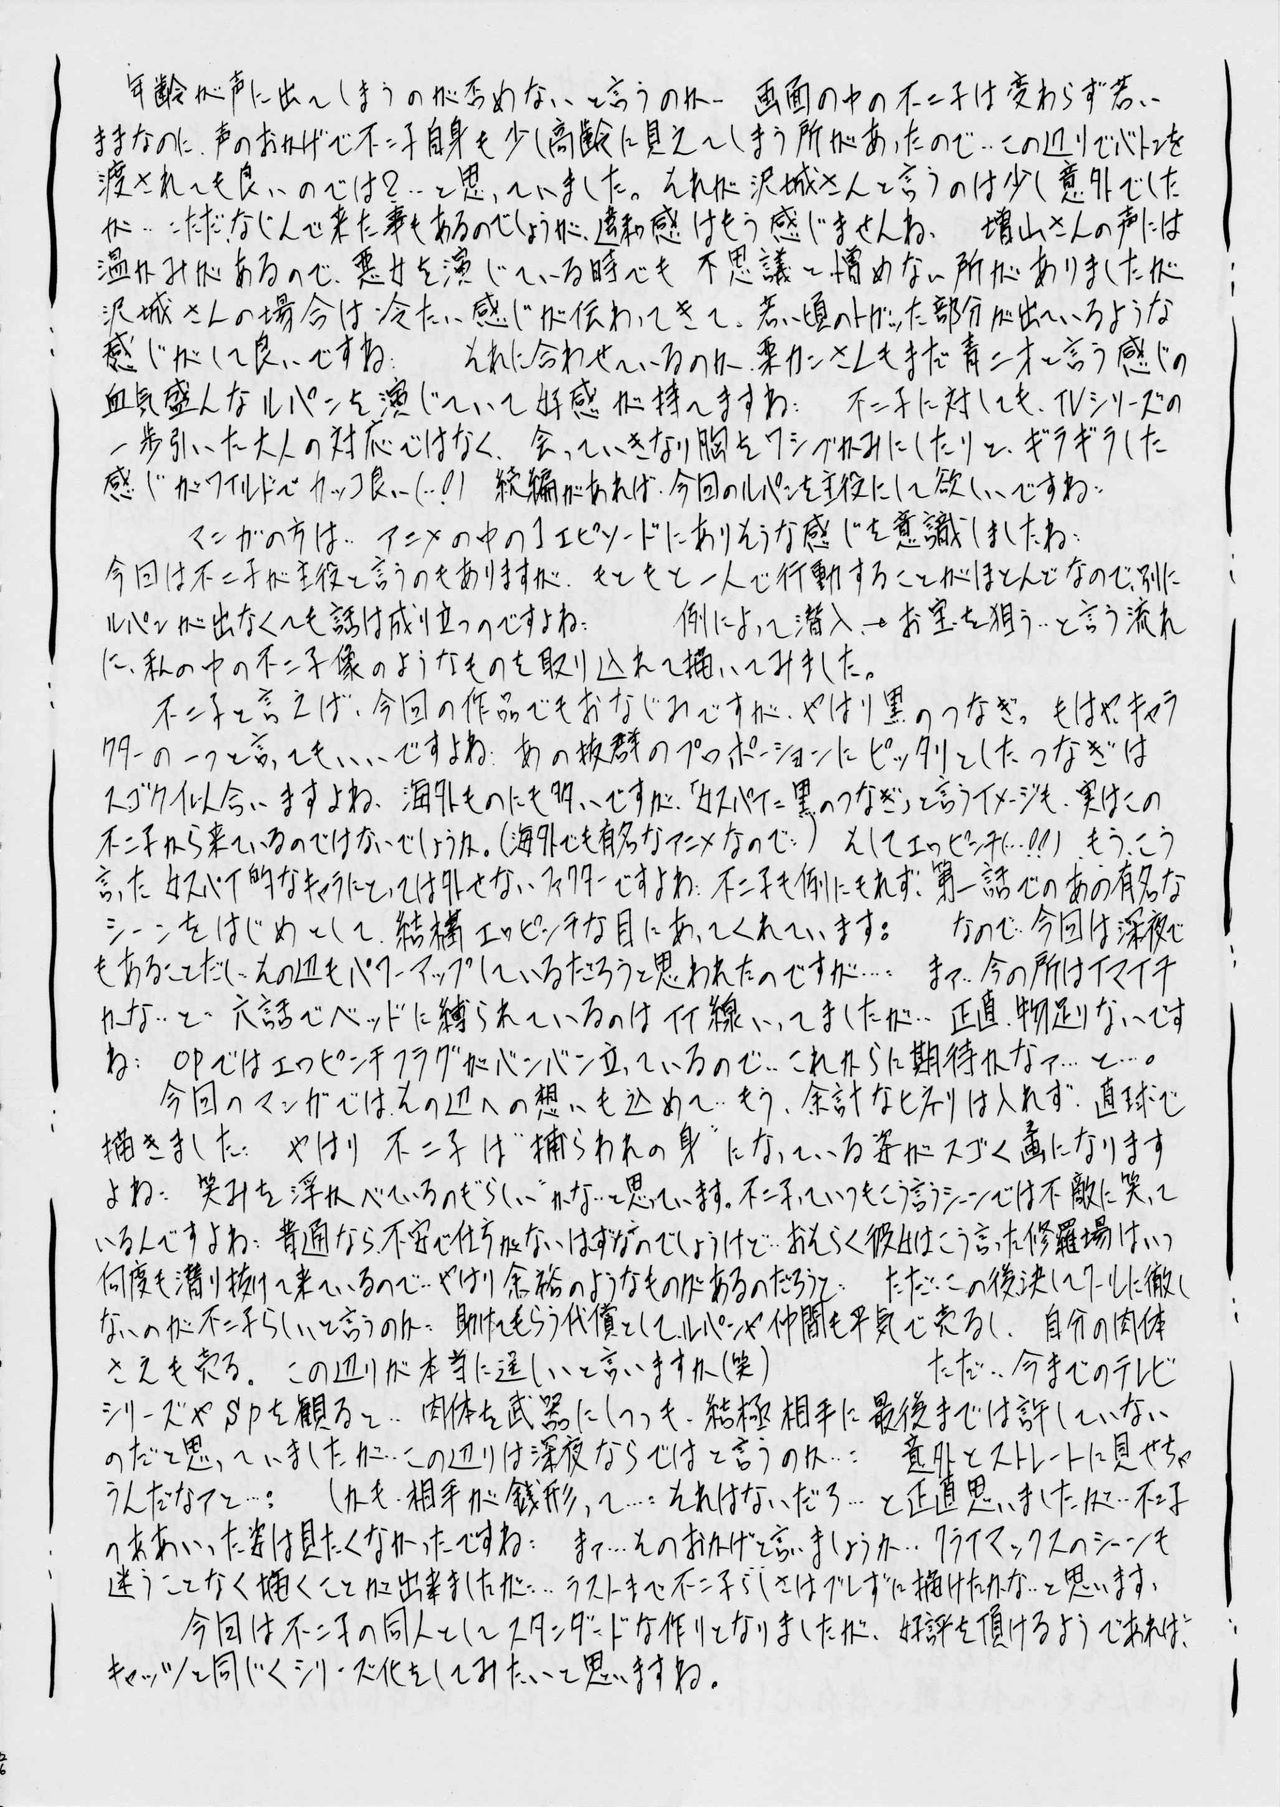 年齢が声に出てしまうのが否めないと言うのか… 画面の中の不二子は変わらず若い
ままなのに、声のおかげで不二子自身も少し高齢に見えてしまう所があったので‥この辺りでバトンを
渡されても良いのでは?‥と思っていました。それが沢城さんと言うのは少し意外でした
が‥ただ、なじんで来た事もあるのでしょうが、違和感はもう感じませんね、 増山さんの声には
温かみがあるので、悪女を演じている時でも 不思議と憎めない所がありましたが
沢城さんの場合は冷たい感じが伝わってきて、若い頃のトガッた部分が出ているような
感じがして良いですね‥ それに合わせているのか、栗カンさんもまだ青二才と言う感じの
血気盛んなルパンを演じていて好感が持てますね‥ 不二子に対しても、TVシリーズの
一歩引いた大人の対応ではなく、会っていきなり胸をワシづかみにしたりと、ギラギラした
感じがワイルドでカッコ良い(‥!) 続編があれば、今回のルパンを主役にして欲しいですね‥
マンガの方は‥ アニメの中の1エピソードにありそうな感じを意識しましたね‥
今回は不二子が主役と言うのもありますが、もともと一人で行動することがほとんどなので、別に
ルパンが出なくても話は成り立つのですよね‥ 例によって潜入→お宝を狙う‥と言う流れ
に、私の中の不二子像のようなものを取り込れて描いてみました。
不二子と言えば、今回の作品でもおなじみですが、やはり黒のつなぎっ もはや、キャラ
クターの一つと言ってもいいですよね‥ あの抜群のプロポーションにピッタリとしたつなぎは
スゴク似合いますよね、海外ものにも多いですが、「女スパイ=黒のつなぎ」と言うイメージも、実はこの
不二子から来ているのではないでしょうか。(海外でも有名なアニメなので‥) そしてエロピンチ(…!!)、もう、こう
言った女スパイ的なキャラにとっては外せないファクターですよね‥不二子も例にもれず、第一話でのあの有名な
シーンをはじめとして、結構エロピンチな目にあってくれています‥ なので‥今回は深夜で
もあることだし‥その辺もパワーアップしているだろうと思われたのですが…‥ まァ‥今の所はイマイチ
かな‥と‥ 六話でベッドに縛られているのはイイ線いってましたが‥ 正直、物足りないです
ね‥ OPではエロピンチフラグがバンバン立っているので‥これからに期待かなァ…と…。
今回のマンガでは、その辺への想いも込めて‥もう、余計なヒネリは入れず、直球で
描きました‥ やはり 不二子は“捕らわれの身”になっている姿がスゴく画になります
よね‥ 笑みを浮かべているのも“らしい”かな‥と思っています。不二子っていつもこう言うシーンでは不敵に笑って
いるんですよね‥普通なら、不安で仕方がないはずなのでしょうけど‥おそらく彼女はこう言った修羅場はいつ
何度も潜り抜けて来ているので‥やはり余裕のようなものがあるのだろうと‥ ただ‥この後決してクールに徹し
ないのが不二子らしいと言うのか‥ 助けてもらう代償として、ルパンや仲間も平気で売るし、自分の肉体
さえも売る。この辺りが本当に逞しいと言いますか(笑) ただ‥今までのテレビ
シリーズやSPを観ると‥ 肉体を武器にしつつも、結極相手に最後までは許していない
のだと思っていましたが‥この辺りは深夜ならではと言うのか…‥ 意外とストレートに見せちゃ
うんだなァと…‥ しかも、相手が銭形って…‥それはないだろ…と正直思いましたが‥不二子
のああいった姿は見たくなかったですね‥ まァ…そのおかげと言いましょうか‥クライマックスのシーンも
迷うことなく描くことが出来ましたが…ラストまで不二子らしさはブレずに描けたかな‥と思います、
今回は不二子の同人としてスタンダードな作りとなりましたが、好評を頂けるようであれば、
キャッツと同じくシリーズ化をしてみたいと思いますね。
26